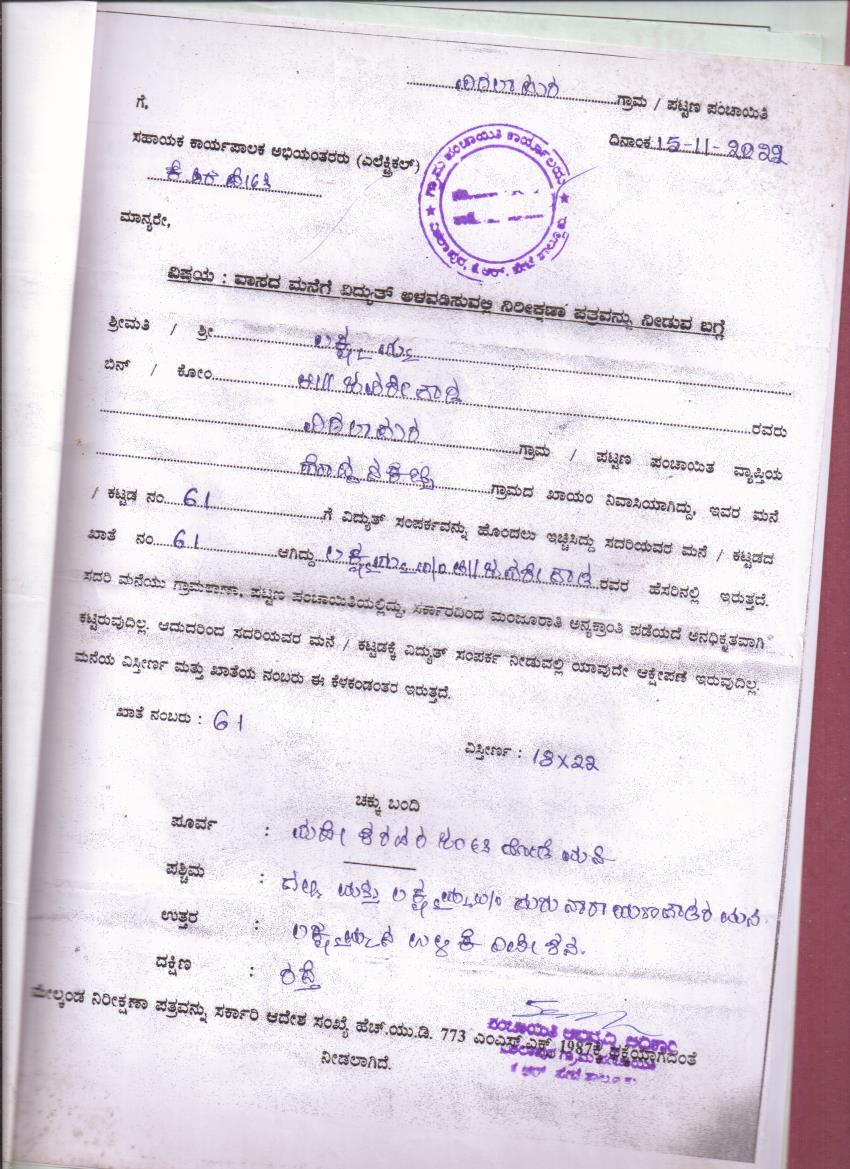 ವಿಠಲಾಪುರ ಗ್ರಾಮ / ಪಟ್ಟಣ ಪಂಚಾಯಿತಿ
ಗೆ,
ದಿನಾಂಕ 15-11-2022
ಸಹಾಯಕ ಕಾರ್ಯಪಾಲಕ ಅಭಿಯಂತರರು (ಎಲೆಕ್ಟ್ರಿಕಲ್)
ಕೆ.ಆರ್.ಪೇಟೆ
ಗ್ರಾಮ ಪಂಚಾಯಿತಿ ಕಾರ್ಯಾಲಯ
ವಿಠಲಾಪುರ, ಕೆ.ಆರ್. ಪೇಟೆ ತಾಲ್ಲೂಕು
ಮಾನ್ಯರೇ,
ವಿಷಯ : ವಾಸದ ಮನೆಗೆ ವಿದ್ಯುತ್ ಅಳವಡಿಸುವಲ್ಲಿ ನಿರೀಕ್ಷಣಾ ಪತ್ರವನ್ನು ನೀಡುವ ಬಗ್ಗೆ
ಶ್ರೀಮತಿ / ಶ್ರೀ ಲಕ್ಷ್ಮಮ್ಮ
ಬಿನ್ / ಕೋಂ ರವರು
ವಿಠಲಾಪುರ ಗ್ರಾಮ / ಪಟ್ಟಣ ಪಂಚಾಯಿತ ವ್ಯಾಪ್ತಿಯ
ಗ್ರಾಮದ ಖಾಯಂ ನಿವಾಸಿಯಾಗಿದ್ದು, ಇವರ ಮನೆ
/ ಕಟ್ಟಡ ನಂ. 61 ಗೆ ವಿದ್ಯುತ್ ಸಂಪರ್ಕವನ್ನು ಹೊಂದಲು ಇಚ್ಛಿಸಿದ್ದು ಸದರಿಯವರ ಮನೆ / ಕಟ್ಟಡದ
ಖಾತೆ ನಂ. 61 ಆಗಿದ್ದು ಲಕ್ಷ್ಮಮ್ಮ ರವರ ಹೆಸರಿನಲ್ಲಿ ಇರುತ್ತದೆ.
ಸದರಿ ಮನೆಯು ಗ್ರಾಮಠಾಣಾ, ಪಟ್ಟಣ ಪಂಚಾಯಿತಿಯಲ್ಲಿದ್ದು, ಸರ್ಕಾರದಿಂದ ಮಂಜೂರಾತಿ ಅನ್ಯಕ್ರಾಂತಿ ಪಡೆಯದೆ ಅನಧಿಕೃತವಾಗಿ
ಕಟ್ಟಿರುವುದಿಲ್ಲ. ಆದುದರಿಂದ ಸದರಿಯವರ ಮನೆ / ಕಟ್ಟಡಕ್ಕೆ ವಿದ್ಯುತ್ ಸಂಪರ್ಕ ನೀಡುವಲ್ಲಿ ಯಾವುದೇ ಆಕ್ಷೇಪಣೆ ಇರುವುದಿಲ್ಲ.
ಮನೆಯ ವಿಸ್ತೀರ್ಣ ಮತ್ತು ಖಾತೆಯ ನಂಬರು ಈ ಕೆಳಕಂಡಂತರ ಇರುತ್ತದೆ.
ಖಾತೆ ನಂಬರು : 61
ವಿಸ್ತೀರ್ಣ : 18x22
ಚಕ್ಕು ಬಂದಿ
ಪೂರ್ವ : ಮನೆ
ಪಶ್ಚಿಮ : ಗಲ್ಲಿ ಮತ್ತು ಲಕ್ಷ್ಮಮ್ಮ ಮನೆ.
ಉತ್ತರ : ಲಕ್ಷ್ಮಮ್ಮನ ಉಳಿಕೆ ನಿವೇಶನ.
ದಕ್ಷಿಣ : ರಸ್ತೆ
ಮೇಲ್ಕಂಡ ನಿರೀಕ್ಷಣಾ ಪತ್ರವನ್ನು ಸರ್ಕಾರಿ ಆದೇಶ ಸಂಖ್ಯೆ ಹೆಚ್.ಯು.ಡಿ. 773 ಎಂಎನ್ಎಕ್ಸ್ 1987ಕ್ಕೆ ಶಕ್ತಿಯಾಗದಂತೆ
ನೀಡಲಾಗಿದೆ.
ಪಂಚಾಯಿತಿ ಅಭಿವೃದ್ಧಿ ಅಧಿಕಾರಿ
ವಿಠಲಾಪುರ ಗ್ರಾಮ ಪಂಚಾಯಿತಿ
ಕೆ.ಆರ್. ಪೇಟೆ ತಾಲ್ಲೂಕು